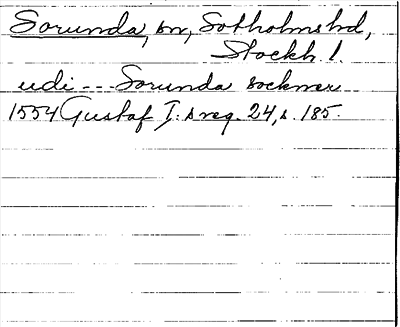 Sorunda, sn, Sotholms hd,
Stockh. l.
udi --- Sorunda sockner
1554 Gustaf I:s reg. 24, s. 185.